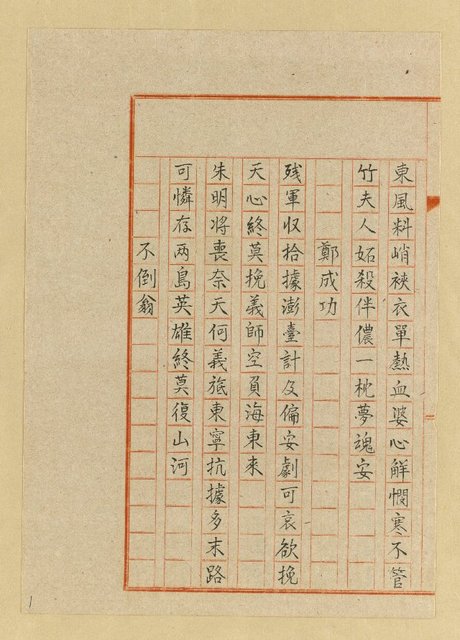 東風料峭裌衣單熱血婆心解憫寒不管
竹夫人妬殺伴儂一枕夢魂安
鄭成功
残軍収拾據澎臺計及偏安劇可哀欲挽
天心終莫挽義師空負海東来
朱明将喪奈天何義旅東寧抗據多末路
可憐存两島英雄終莫復山河
不倒翁